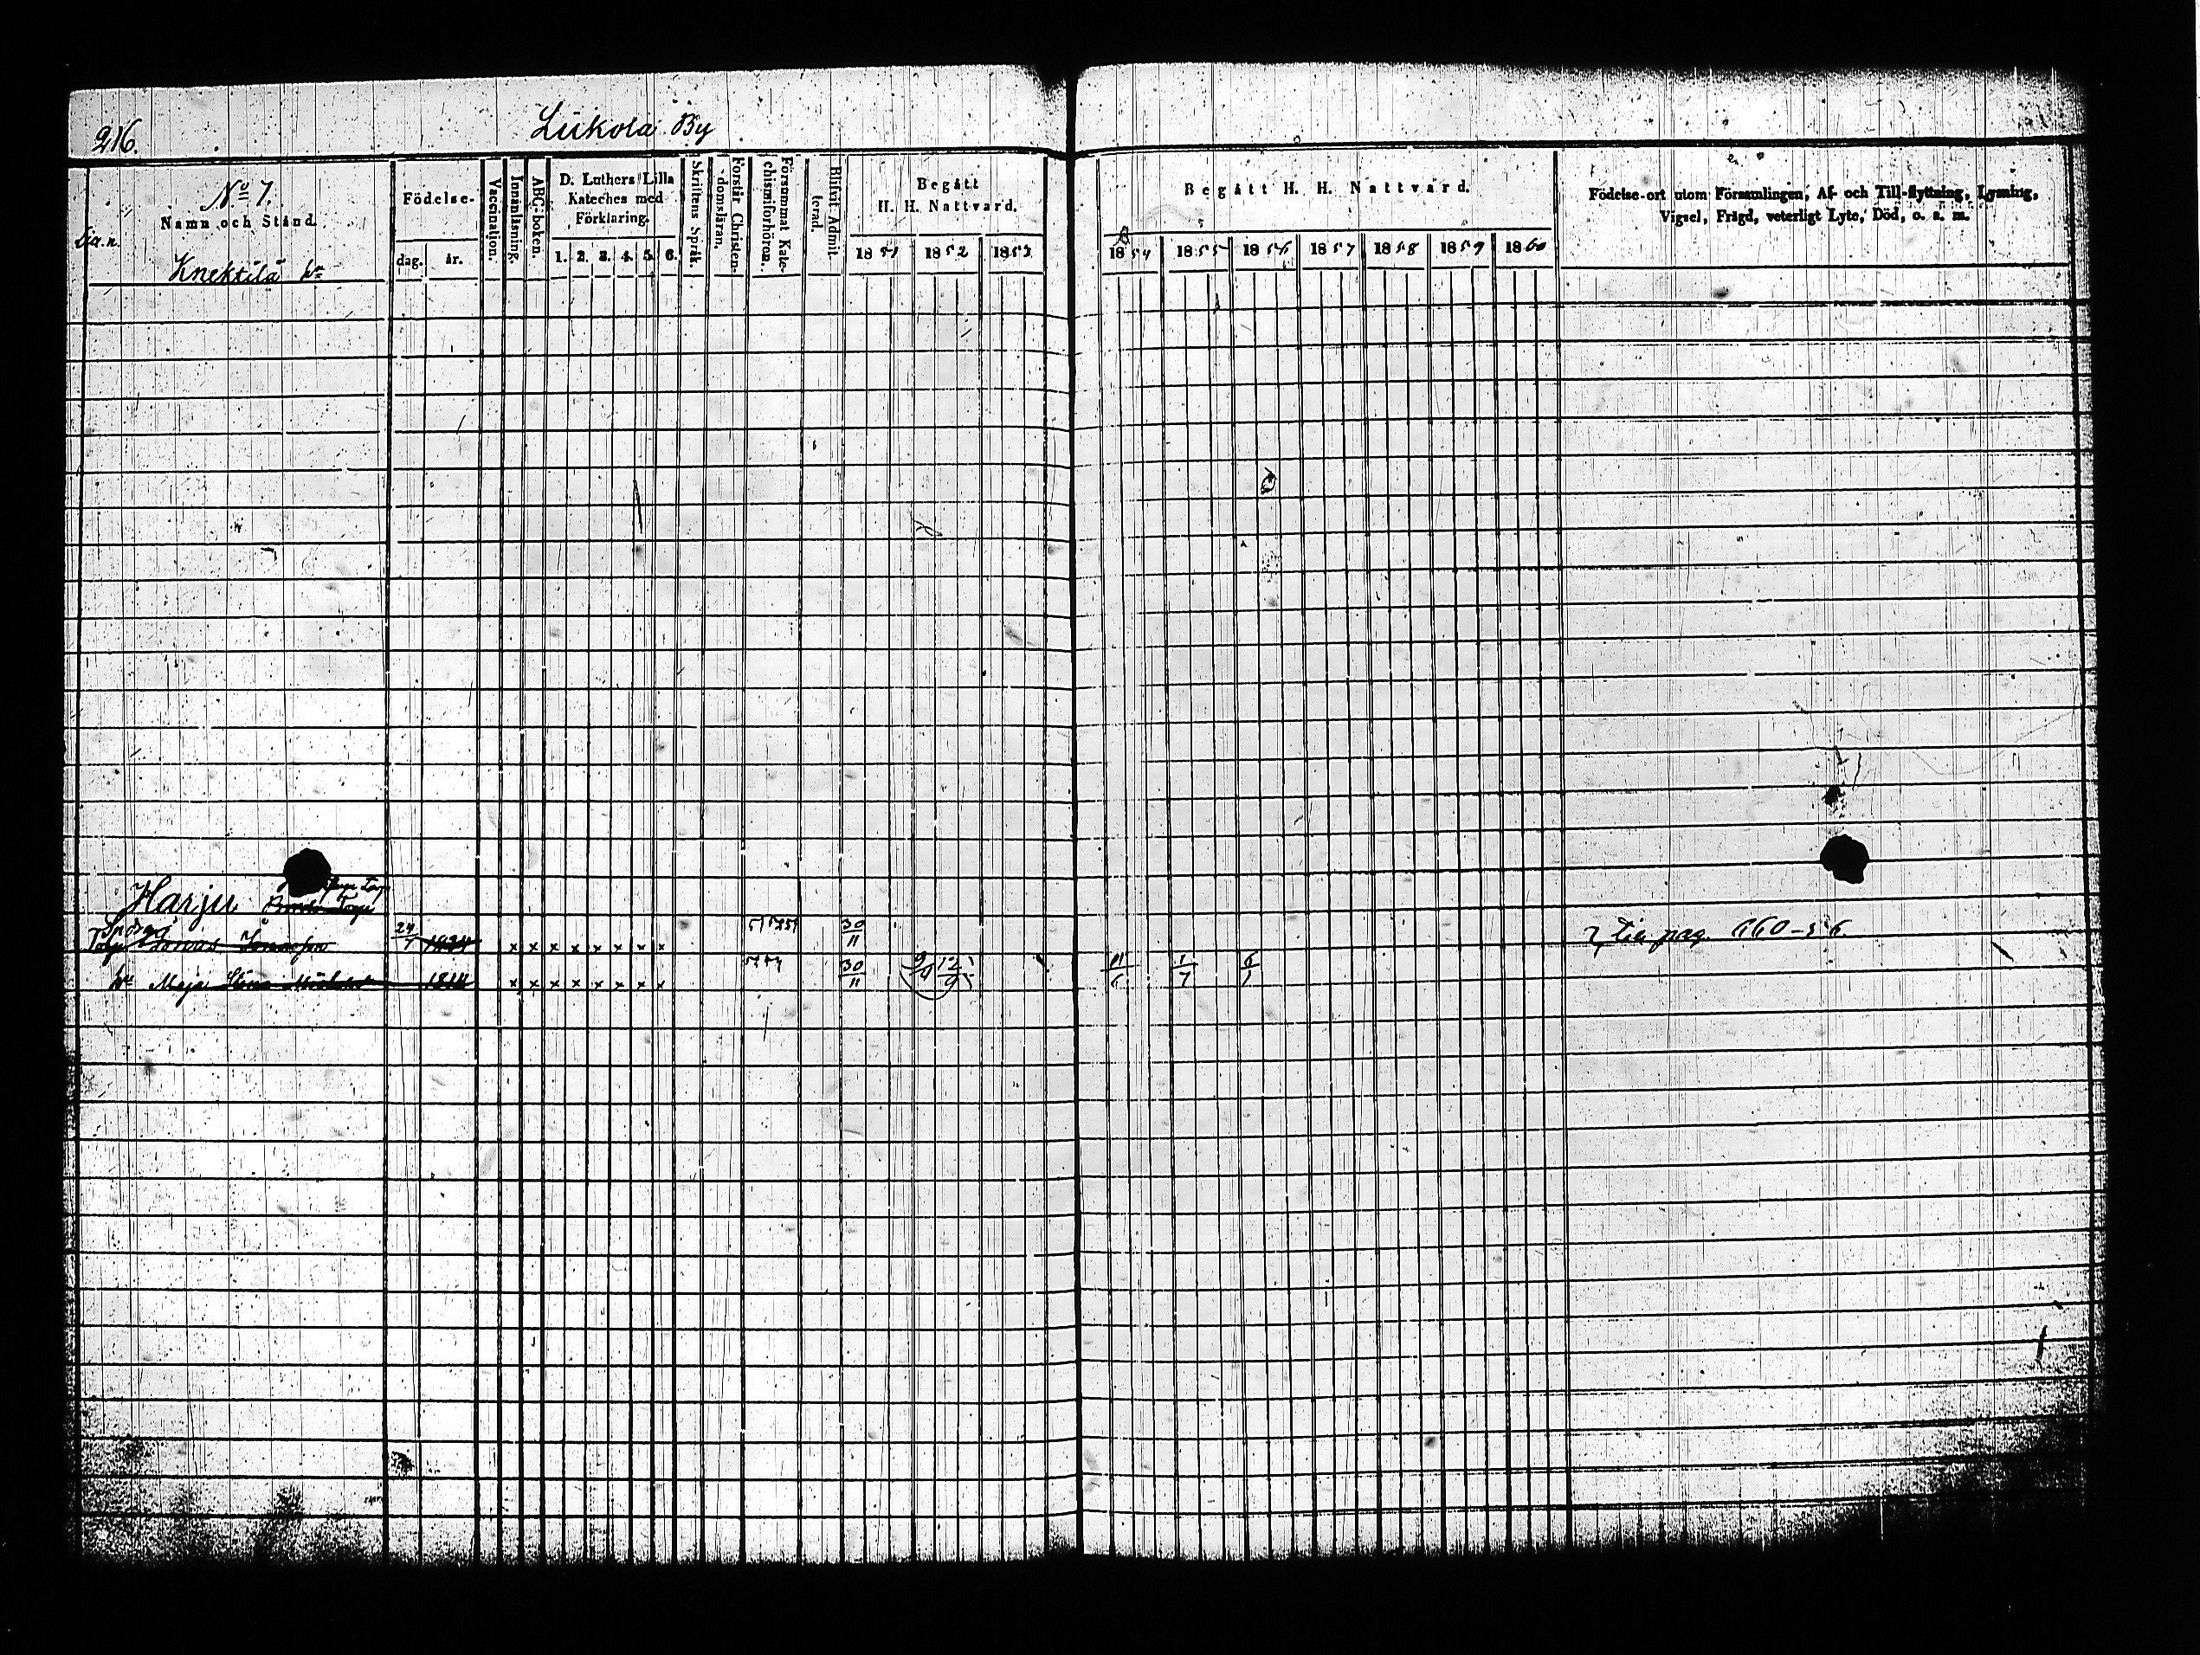 216.
Liikola By
No 7.
Namn och Stånd
Knektilä hn
Födelse-
dag. år.
Vaccination.
Innanläsning.
ABC-boken.
D. Luthers Lilla
Kateches med
Förklaring.
1. 2. 3. 4. 5. 6.
Skriftens Språk.
Förstår Christen-
domsläran.
Försummat Kate-
chismiförhören.
Blifvit Admit-
terad.
Begått
H. H. Nattvard.
1851 1852 1853
Begått H. H. Nattvard.
1854 1855 1856 1857 1858 1859 1860
Födelse-ort utom Församlingen, Af- och Till-flyttning, Lysning,
Vigsel, Frägd, veterligt Lyte, Död, o. s. m.
Harju
24/7 1824 x x x x x x x x 30/11
pag. 660
hu Maja 1814 x x x x x x x x 30/11 9/9 12/9 11/6 1/7 6/1